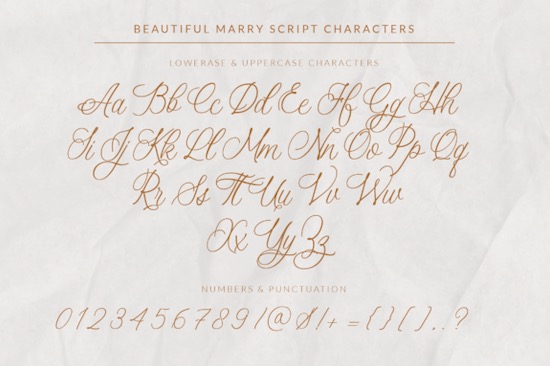 BEAUTIFUL MARRY SCRIPT CHARACTERS
LOWERASE & UPPERCASE CHARACTERS
Aa Bb Cc Dd Ee Ff Gg Hh
Ii Jj Kk Ll Mm Nn Oo Pp Qq
Rr Ss Tt Uu Vv Ww
Xx Yy Zz
NUMBERS & PUNCTUATION
0 1 2 3 4 5 6 7 8 9 ! @ $ / + = { } [ ] . , ?